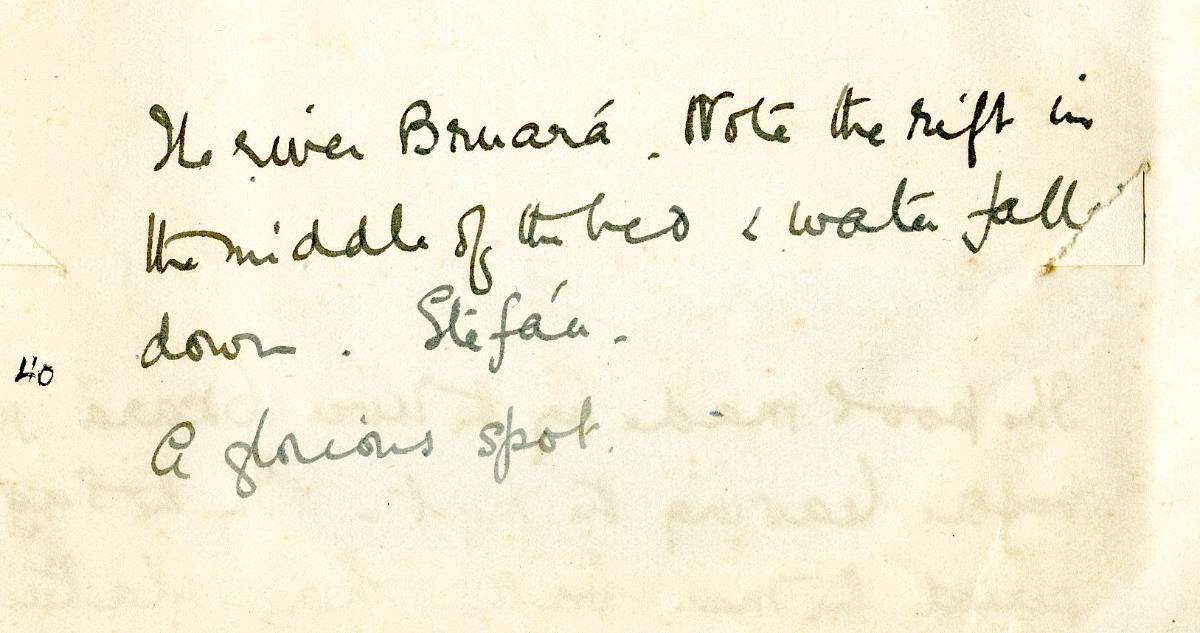 The river Bruará. Note the rift in
the middle of the bed & water fall
down. Stefán.
40
A glorious spot.